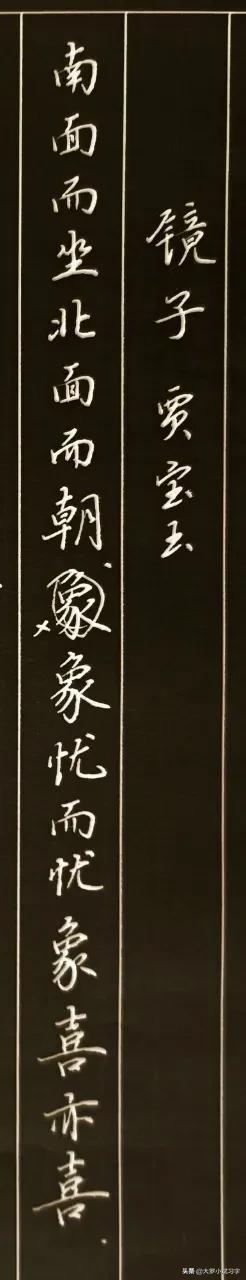 镜子 贾宝玉
南面而坐北面而朝象忧而忧象喜亦喜.
头条 @大罗小凯习字